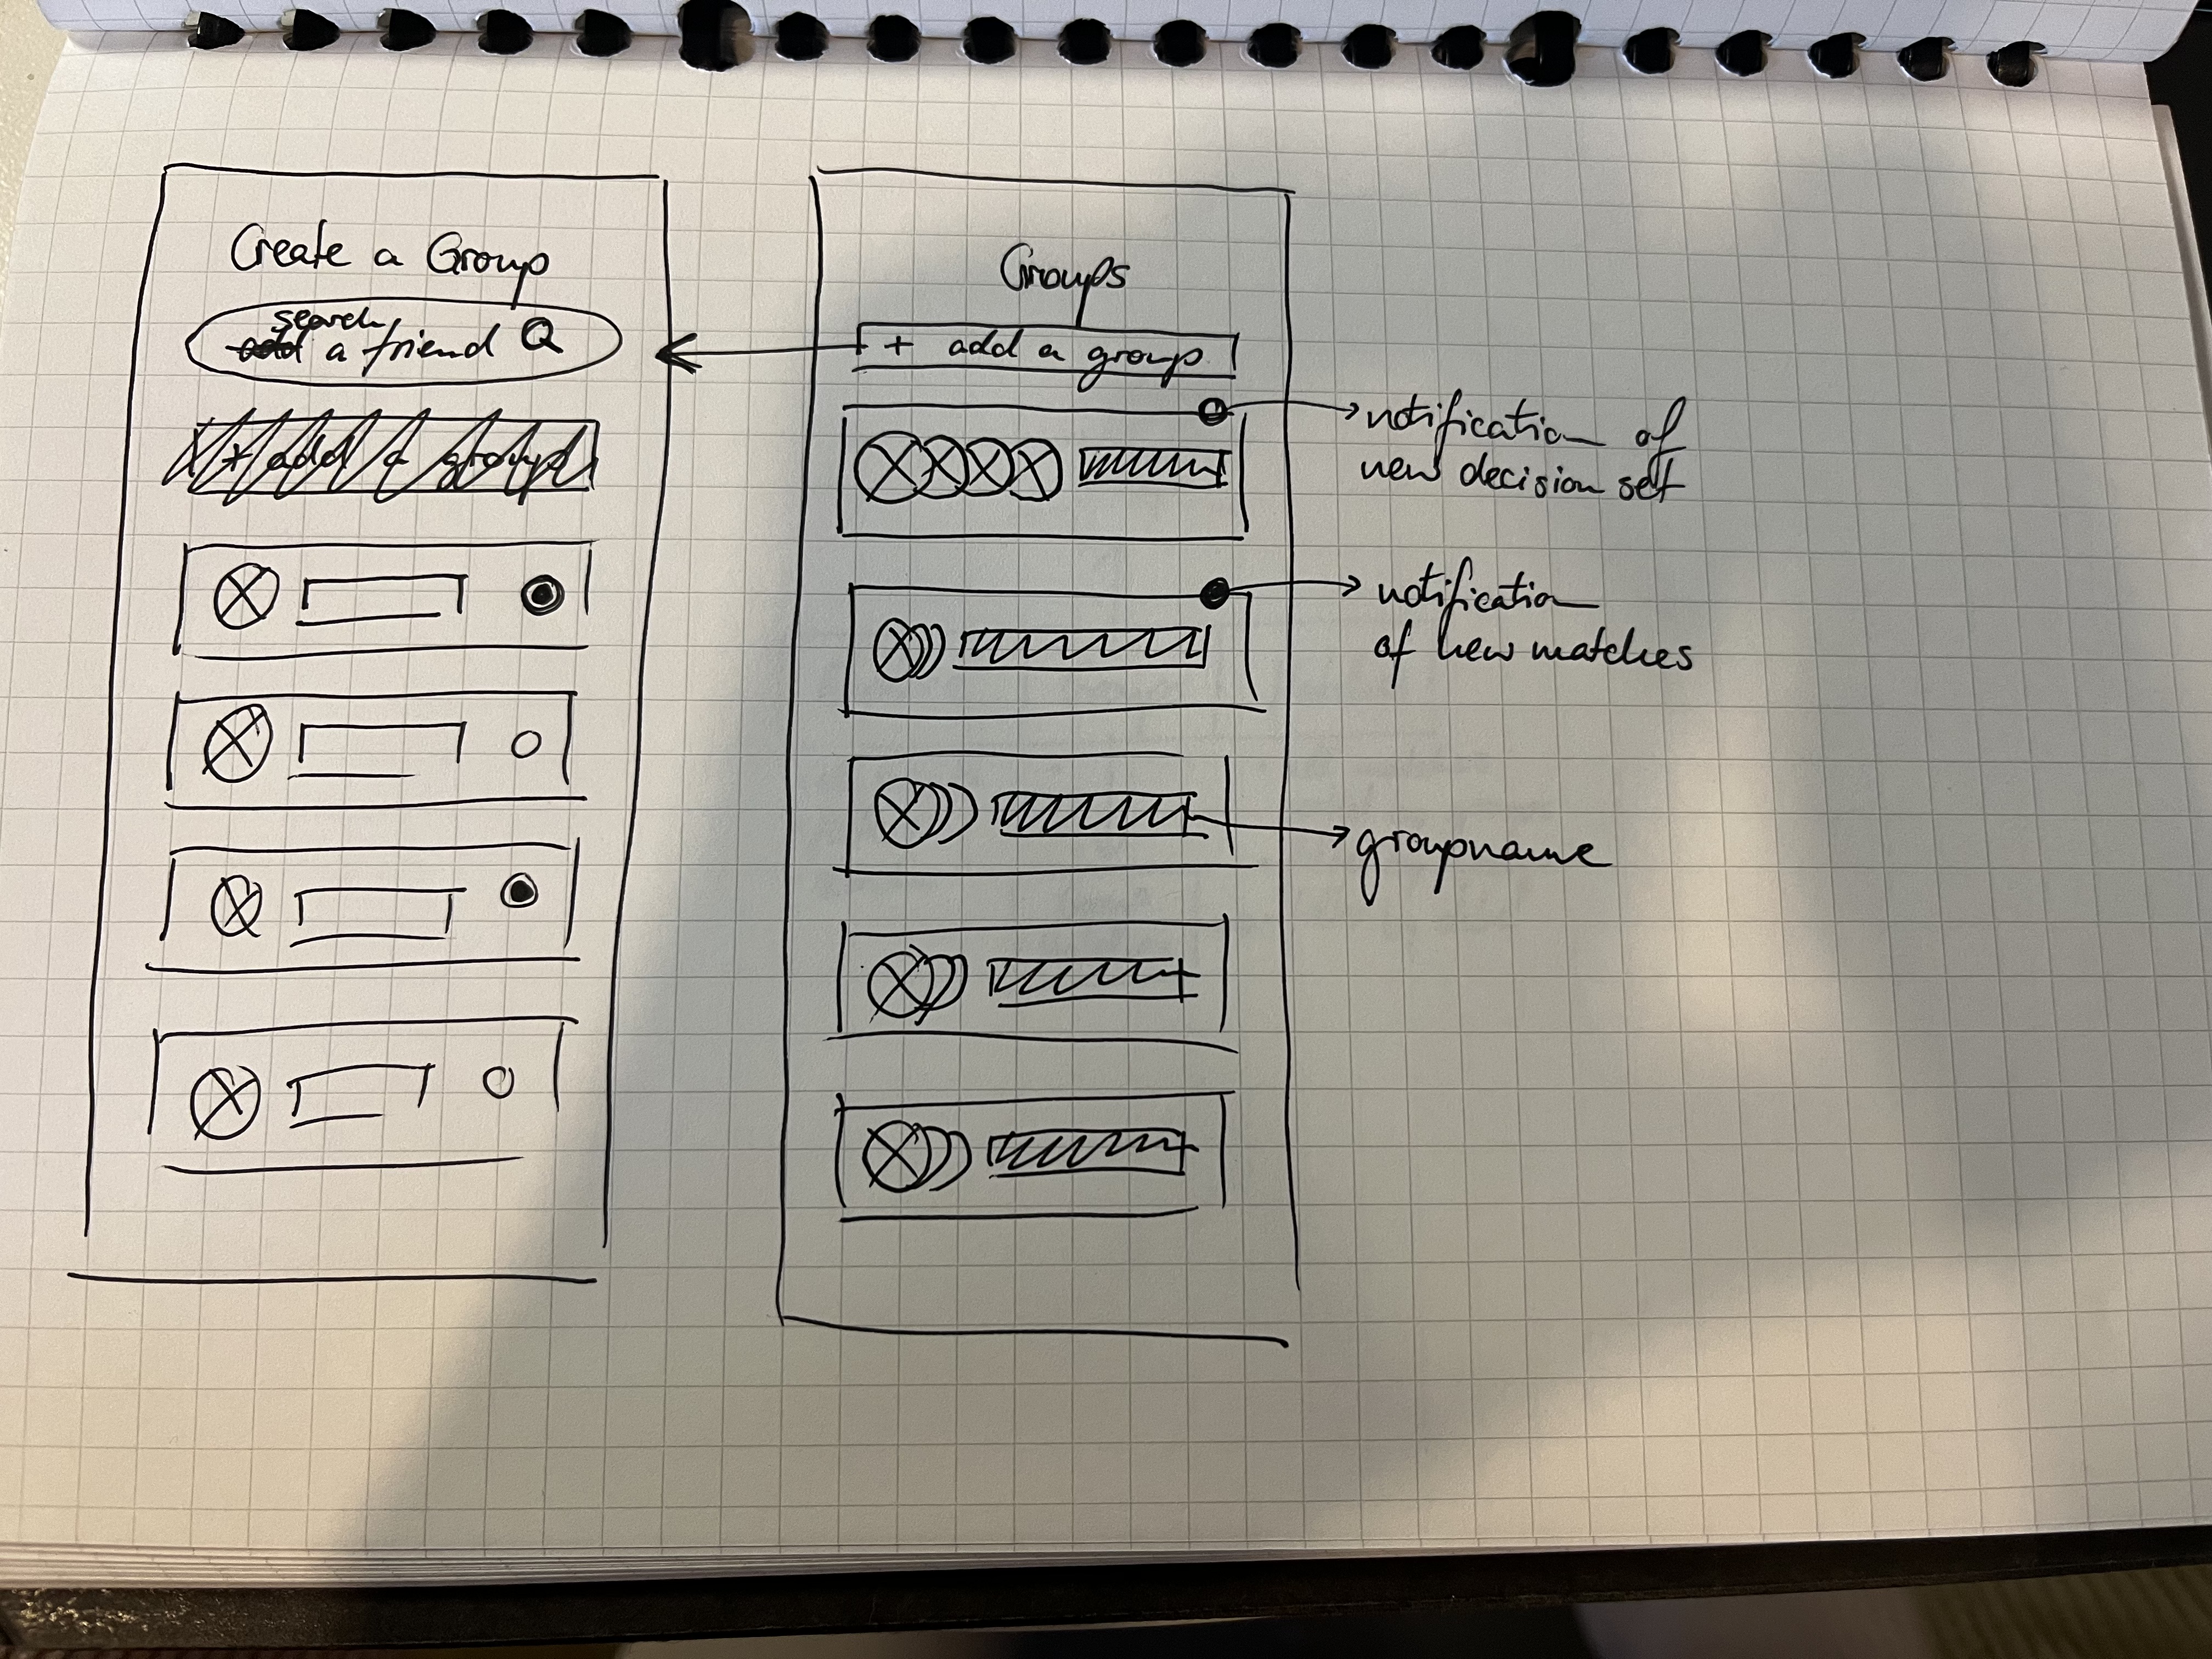 Create a Group
search
add a friend
+ add a group
Groups
+ add a group
notification of
new decision set
notification
of new matches
groupname